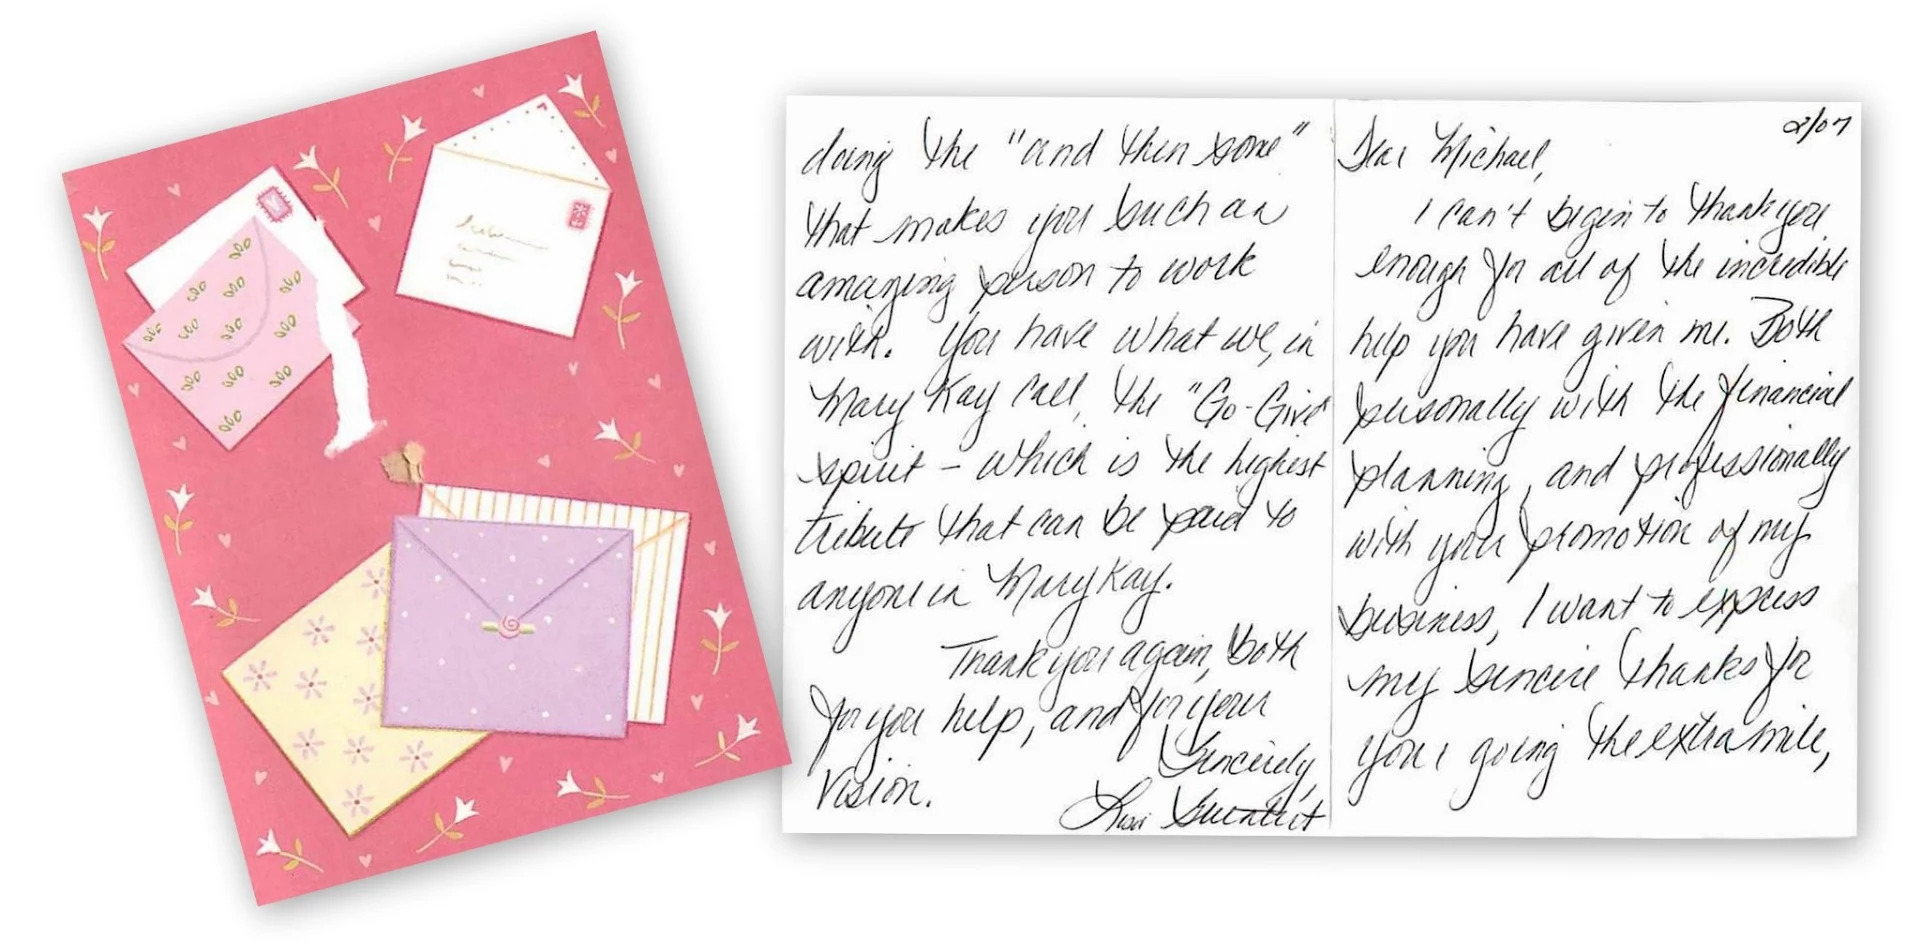 2/07
Dear Michael,
I can't begin to thank you
enough for all of the incredible
help you have given me. Both
personally with the financial
planning, and professionally
with your promotion of my
business, I want to express
my sincere thanks for
your going the extra mile,
doing the "and then some"
that makes you such an
amazing person to work
with. You have what we, in
Mary Kay call, the "Go-Give"
spirit – which is the highest
tribute that can be paid to
anyone in Mary Kay.
Thank you again, both
for you help, and for your
Vision.
Sincerely,